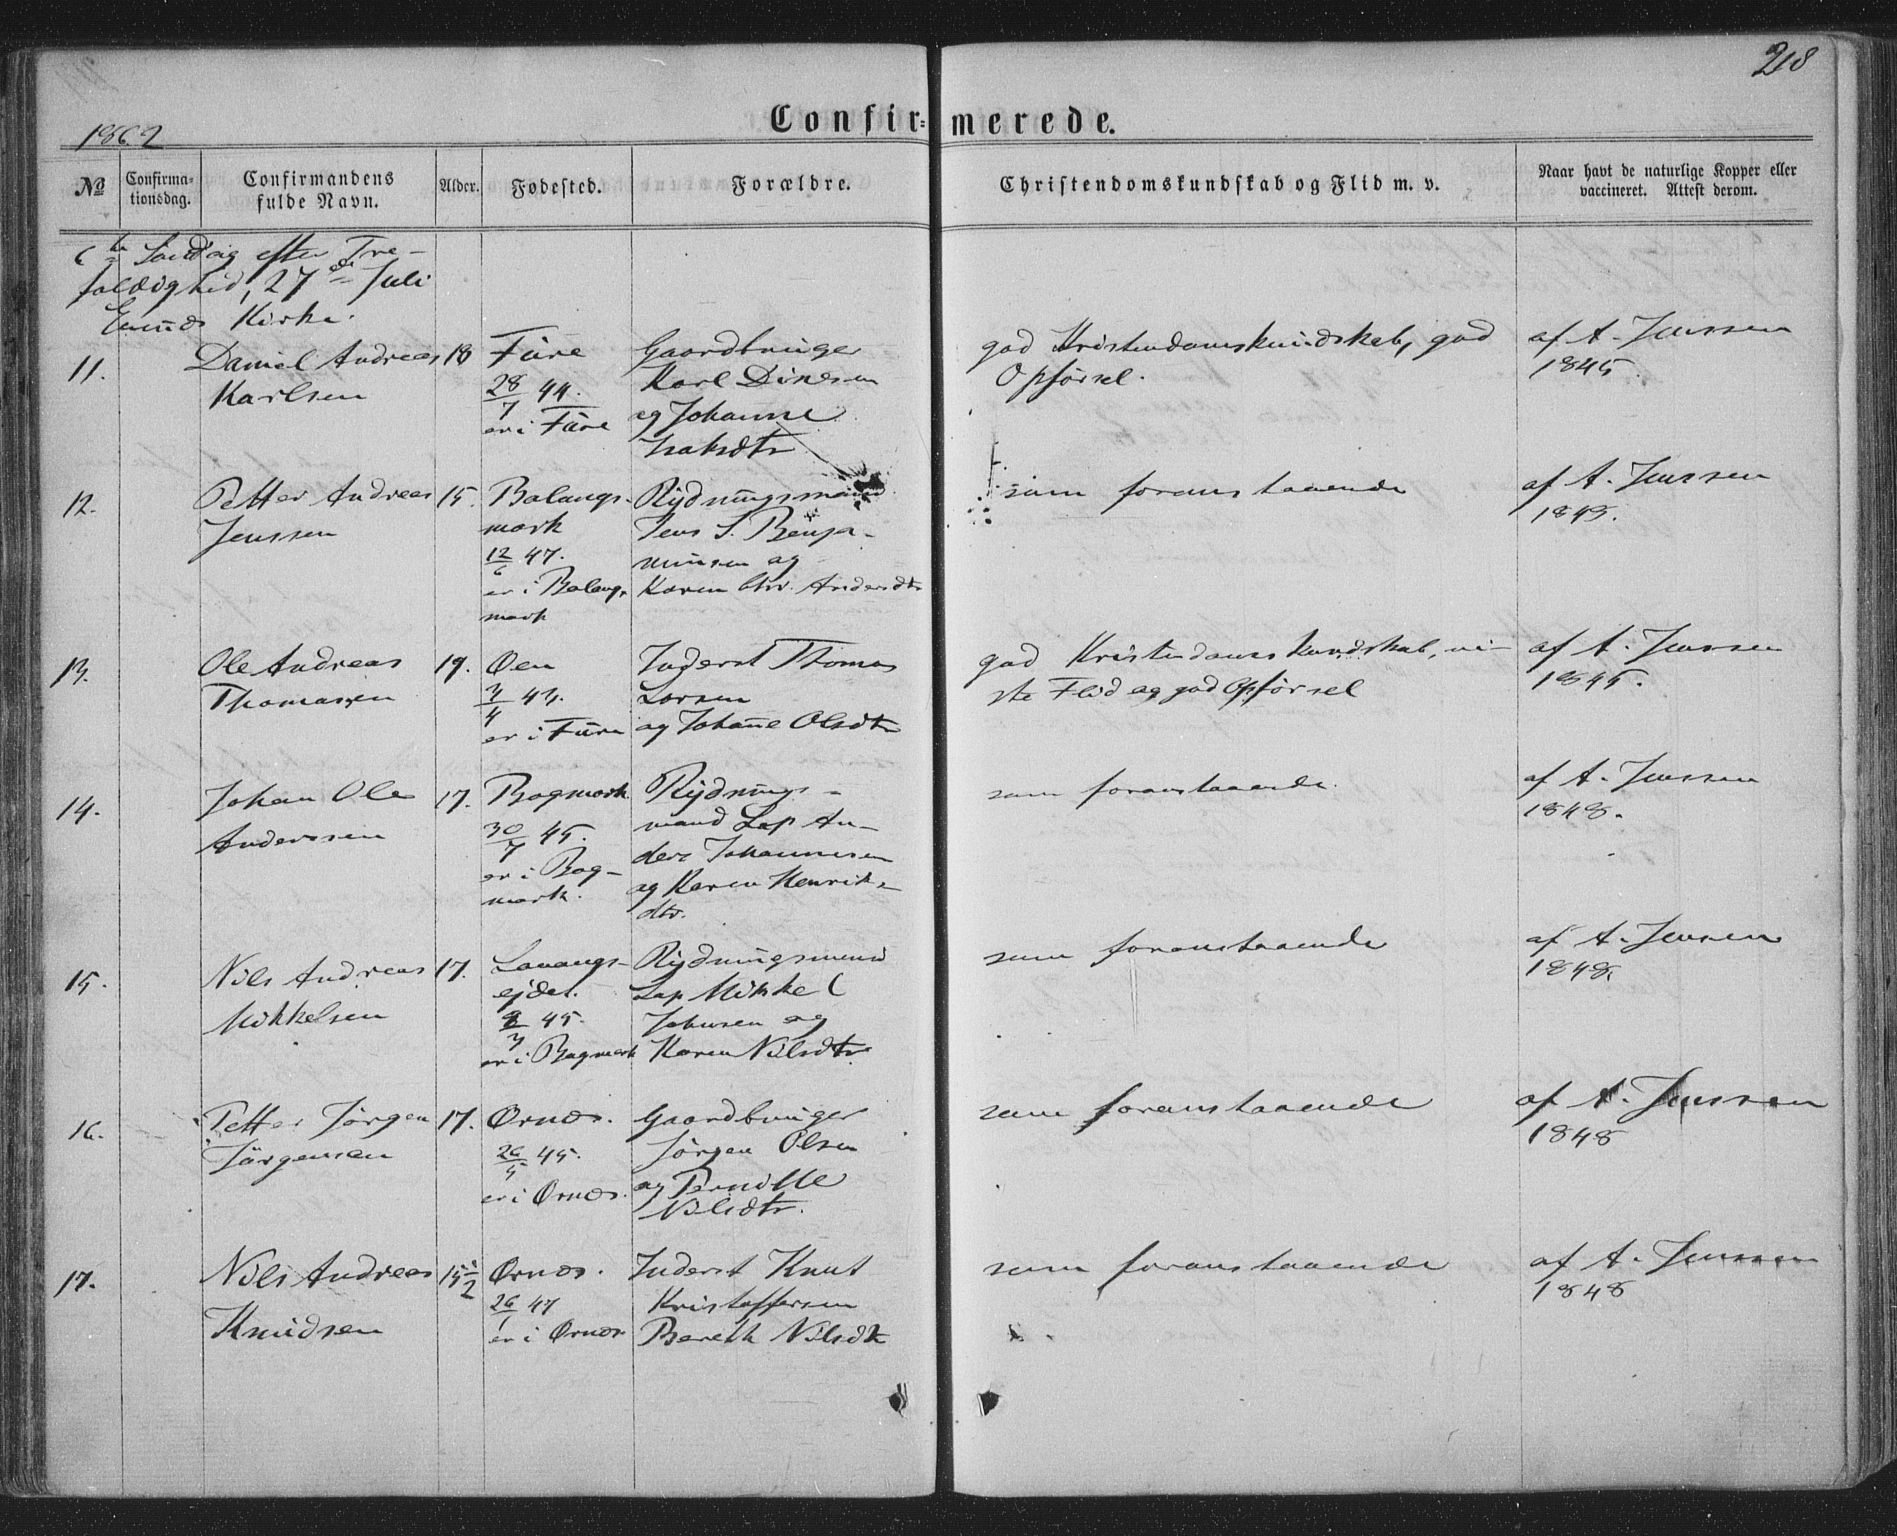 218
1862
Confir- merede.
No
Confirma-
tionsdag.
Confirmandens
fulde Navn.
Alder.
Fødested.
Forældre.
Christendomskundskab og Flid m. v.
Naar havt de naturlige Kopper eller
vaccineret. Attest derom.
6te Søndag efter Tre-
foldighed, 27de Juli
Kirke.
11.
Daniel Andreas
Karlsen
18
Füre
28/7 44.
er i Füre
Gaardbruger
Karl Dinesen
og Johanne
Isaksdtr
god Kristendomskundskab, god
Opførsel.
af A. Jenssen
1845.
12.
Petter Andreas
Jenssen
15.
Balangs-
mark
12/6 47.
er i Balangs-
mark
Rydningsmand
Jens S. Benja-
minsen og
Karen Andersdtr
som foranstaaende
af A. Jenssen
1849.
13.
Ole Andreas
Thomassen
19.
Øen
4/4 43.
er i Füre
Inderst Thomas
Larsen
og Johanne Olsdtr
god Kristendomskundskab, vi-
ste Flid og god Opførsel
af A. Jenssen
1845.
14.
Johan Ole
Anderssen
17.
Bogmark
30/7 45.
er i Bog-
mark.
Rydnings-
mand Lap An-
ders Johannesen
og Karen Henriks-
dtr.
som foranstaaende.
af A. Jenssen
1848.
15.
Nils Andreas
Mikkelsen
17.
Lavangs-
ejdet.
45.
er i Bogmark
Rydningsmand
Lap Mikkel
Johnsen og
Karen Nilsdtr
som foranstaaende
af A. Jenssen
1848.
16.
Petter Jörgen
Jörgensen
17.
Ørnæs.
26/5 45.
er i Ørnæs.
Gaardbruger
Jörgen Olsen
og Pernille
Nilsdtr.
som foranstaaende
af A. Jenssen
1848
17.
Nils Andreas
Knudsen
15 1/2
Ørnæs.
26/1 47
er i Ørnæs
Inderst Knut
Kristoffersen
Bereth Nilsdtr
som foranstaaende
af A. Jenssen
1848